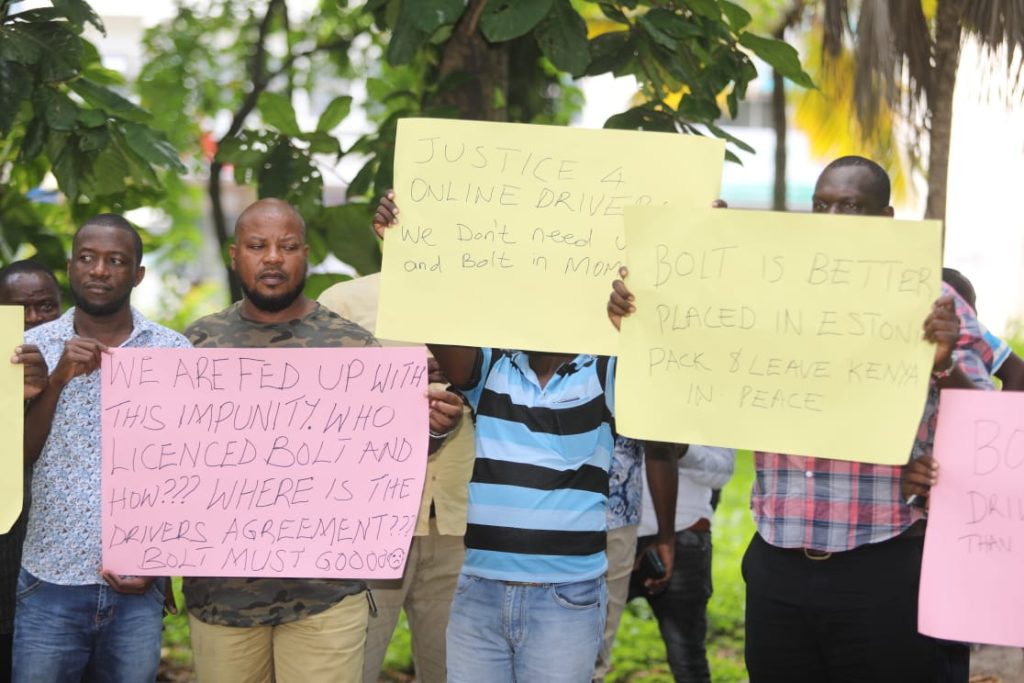 WE ARE FED UP WITH
THIS IMPUNITY. WHO
LICENCED BOLT AND
HOW??? WHERE IS THE
DRIVERS AGREEMENT???
BOLT MUST GOOOOO
JUSTICE 4
ONLINE
We Don't need
and Bolt in
BOLT IS BETTER
PLACED IN
PACK & LEAVE KENYA
IN PEACE
THAN